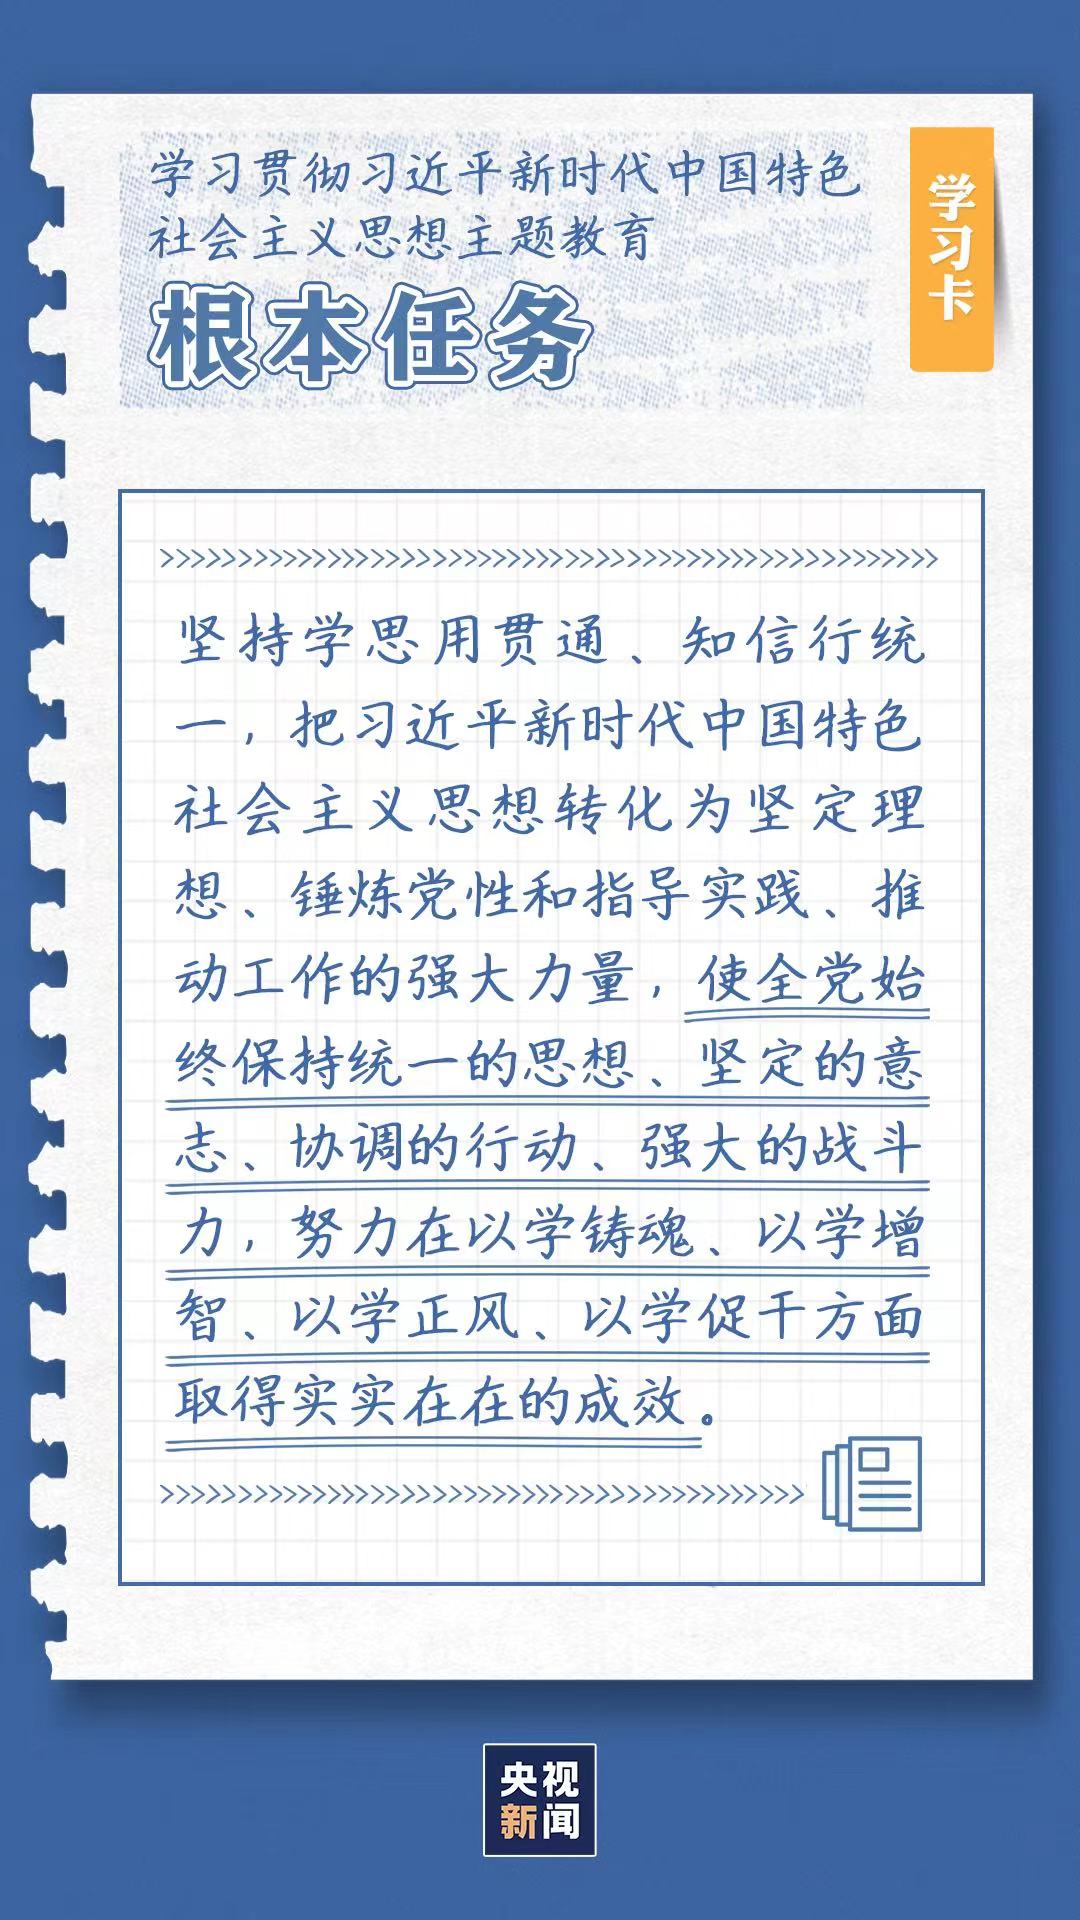 学习贯彻习近平新时代中国特色
社会主义思想主题教育
根本任务
学习卡
坚持学思用贯通、知信行统
一，把习近平新时代中国特色
社会主义思想转化为坚定理
想、锤炼党性和指导实践、推
动工作的强大力量，使全党始
终保持统一的思想、坚定的意
志、协调的行动、强大的战斗
力，努力在以学铸魂、以学增
智、以学正风、以学促干方面
取得实实在在的成效。
央视
新闻